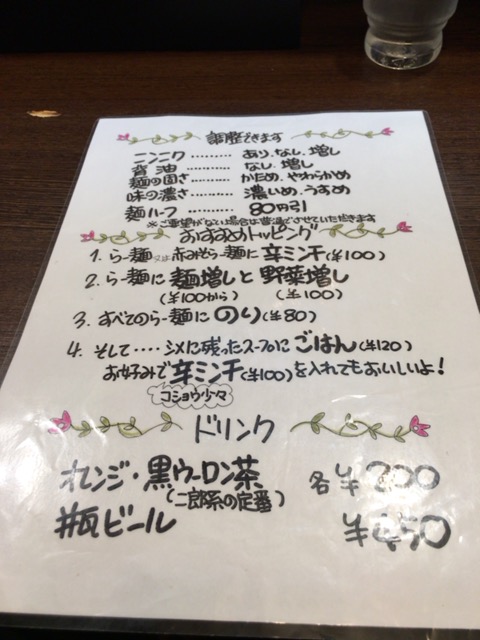 調整できます
ニンニク‥‥‥‥ あり、なし、増し
背油‥‥‥‥ なし、増し
麺の固さ‥‥‥‥ かため、やわらかめ
味の濃さ‥‥‥‥ 濃いめ、うすめ
麺ハーフ‥‥‥‥ 80円引
※ご要望がない場合は普通でさせていただきます
おすすめトッピング
1. らー麺又は赤みそらー麺に辛ミンチ(¥100)
2. らー麺に麺増しと野菜増し
(¥100から) (¥100)
3. すべてのらー麺にのり(¥80)
4. そして‥‥シメに残ったスープにごはん(¥120)
お好みで辛ミンチ(¥100)を入れてもおいしいよ!
コショウ少々
ドリンク
オレンジ・黒ウーロン茶 各¥200
(二郎系の定番)
瓶ビール ¥450